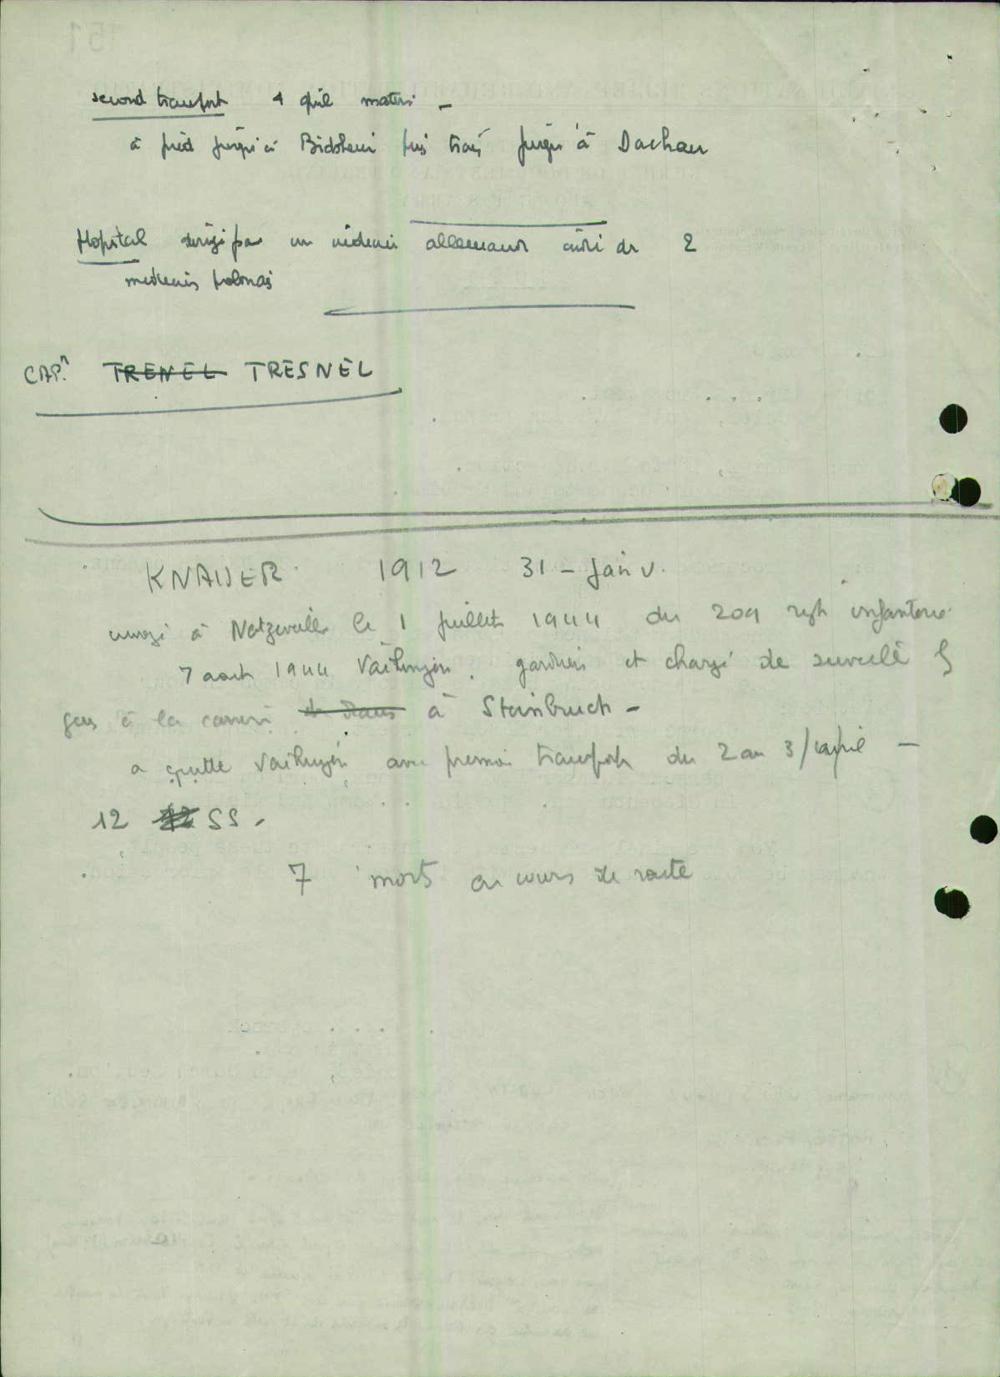 second transport 4 avril matin -
à pied jusqu'à puis train jusqu'à Dachau
Hôpital dirigé par un médecin allemand aidé de 2
médecins polonais
CAP.n TRENEL TRESNEL
KNAUER 1912 31 - Janv.
à Natzweiler le 1 Juillet 1944 du 209 infanterie
7 aout 1944 Vaihingen. gardien et chargé de
à la à Steinbruch -
a quitté Vaihingen avec premier transport du 2 au 3/april -
12 SS.
7 morts au cours de route